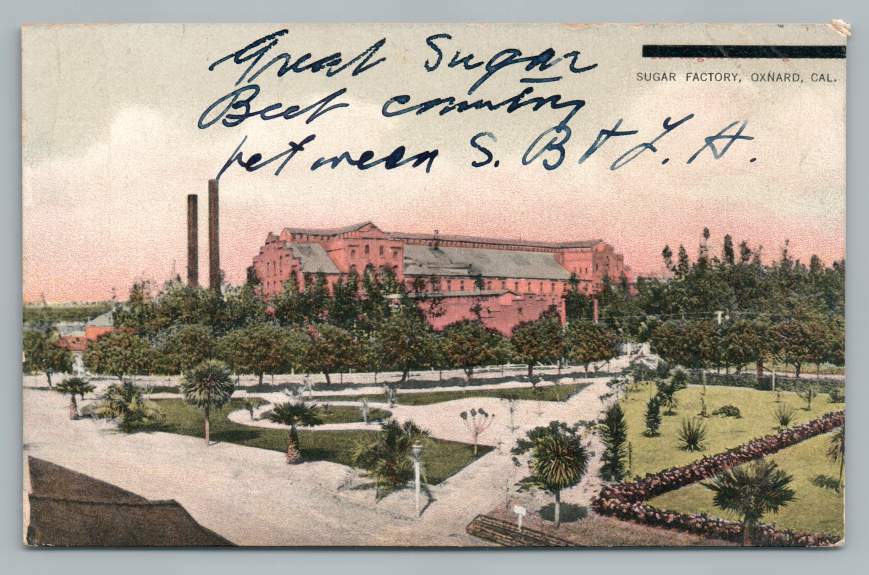 Great Sugar
Beet country
between S. B & L. A.
SUGAR FACTORY, OXNARD, CAL.